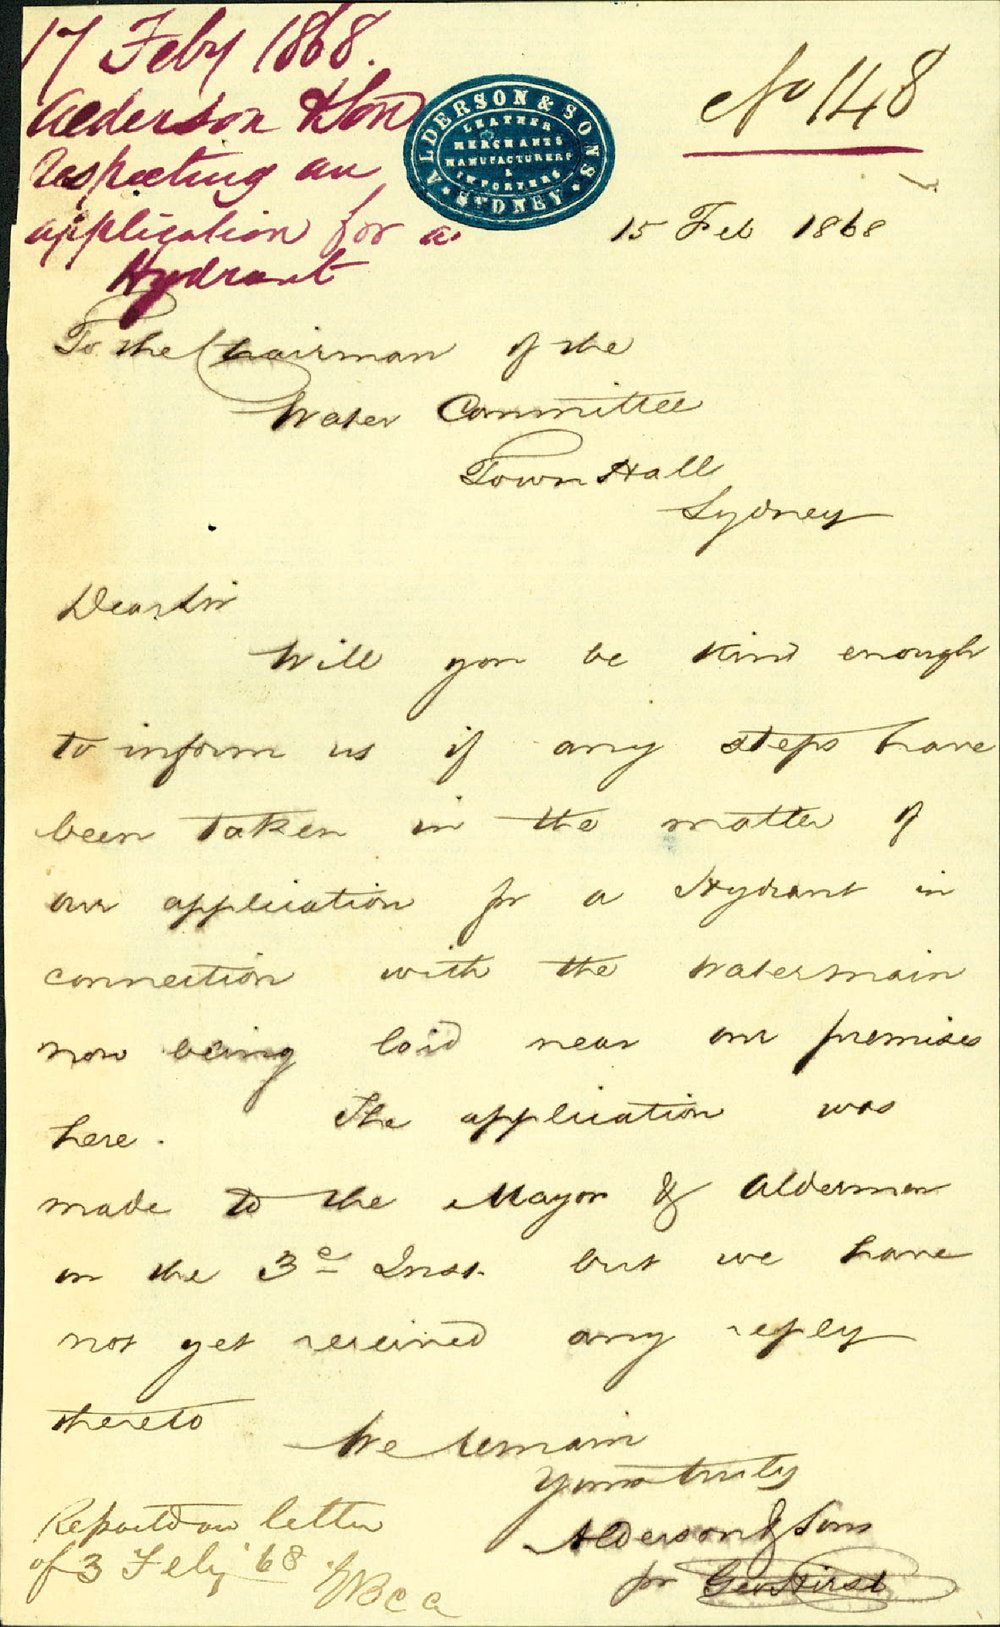 17 Feby 1868.
Alderson & Son
Respecting an
application for a
Hydrant
ALDERSON & SONS
LEATHER
MERCHANTS
MANUFACTURERS
&
IMPORTERS
SYDNEY
No 148
15 Feb 1868
To the Chairman of the
Water Committee
Town Hall
Sydney
Dear Sir
Will you be kind enough
to inform us if any steps have
been taken in the matter of
our application for a Hydrant in
connection with the Watermain
now being laid near our premises
here. The application was
made to the Mayor & Aldermen
on the 3d Inst. but we have
not yet received any reply
thereto
We remain
Yours truly
Alderson & Sons
pr Geo Hirst
Reported on letter
of 3 Feby 68